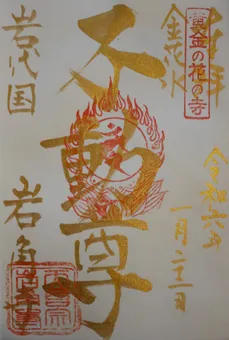 奉拝
黄金の花の寺
金花水
不動尊
令和六年
一月二十一日
岩代国
岩角寺